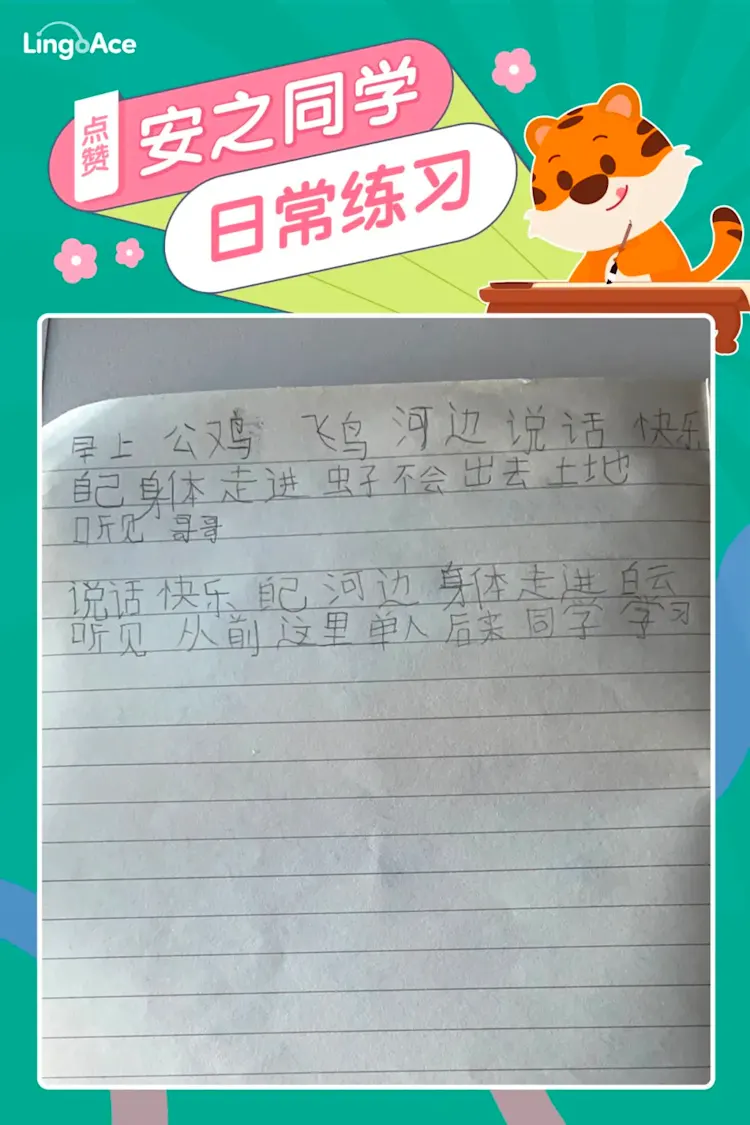 LingoAce
点赞
安之同学
日常练习
早上 公鸡 飞鸟 河边 说话 快乐
自己 身体 走进 虫子 不会 出去 土地
听见 哥哥
说话 快乐 自己 河边 身体 走进 白云
听见 从前 这里 单人 后来 同学 学习